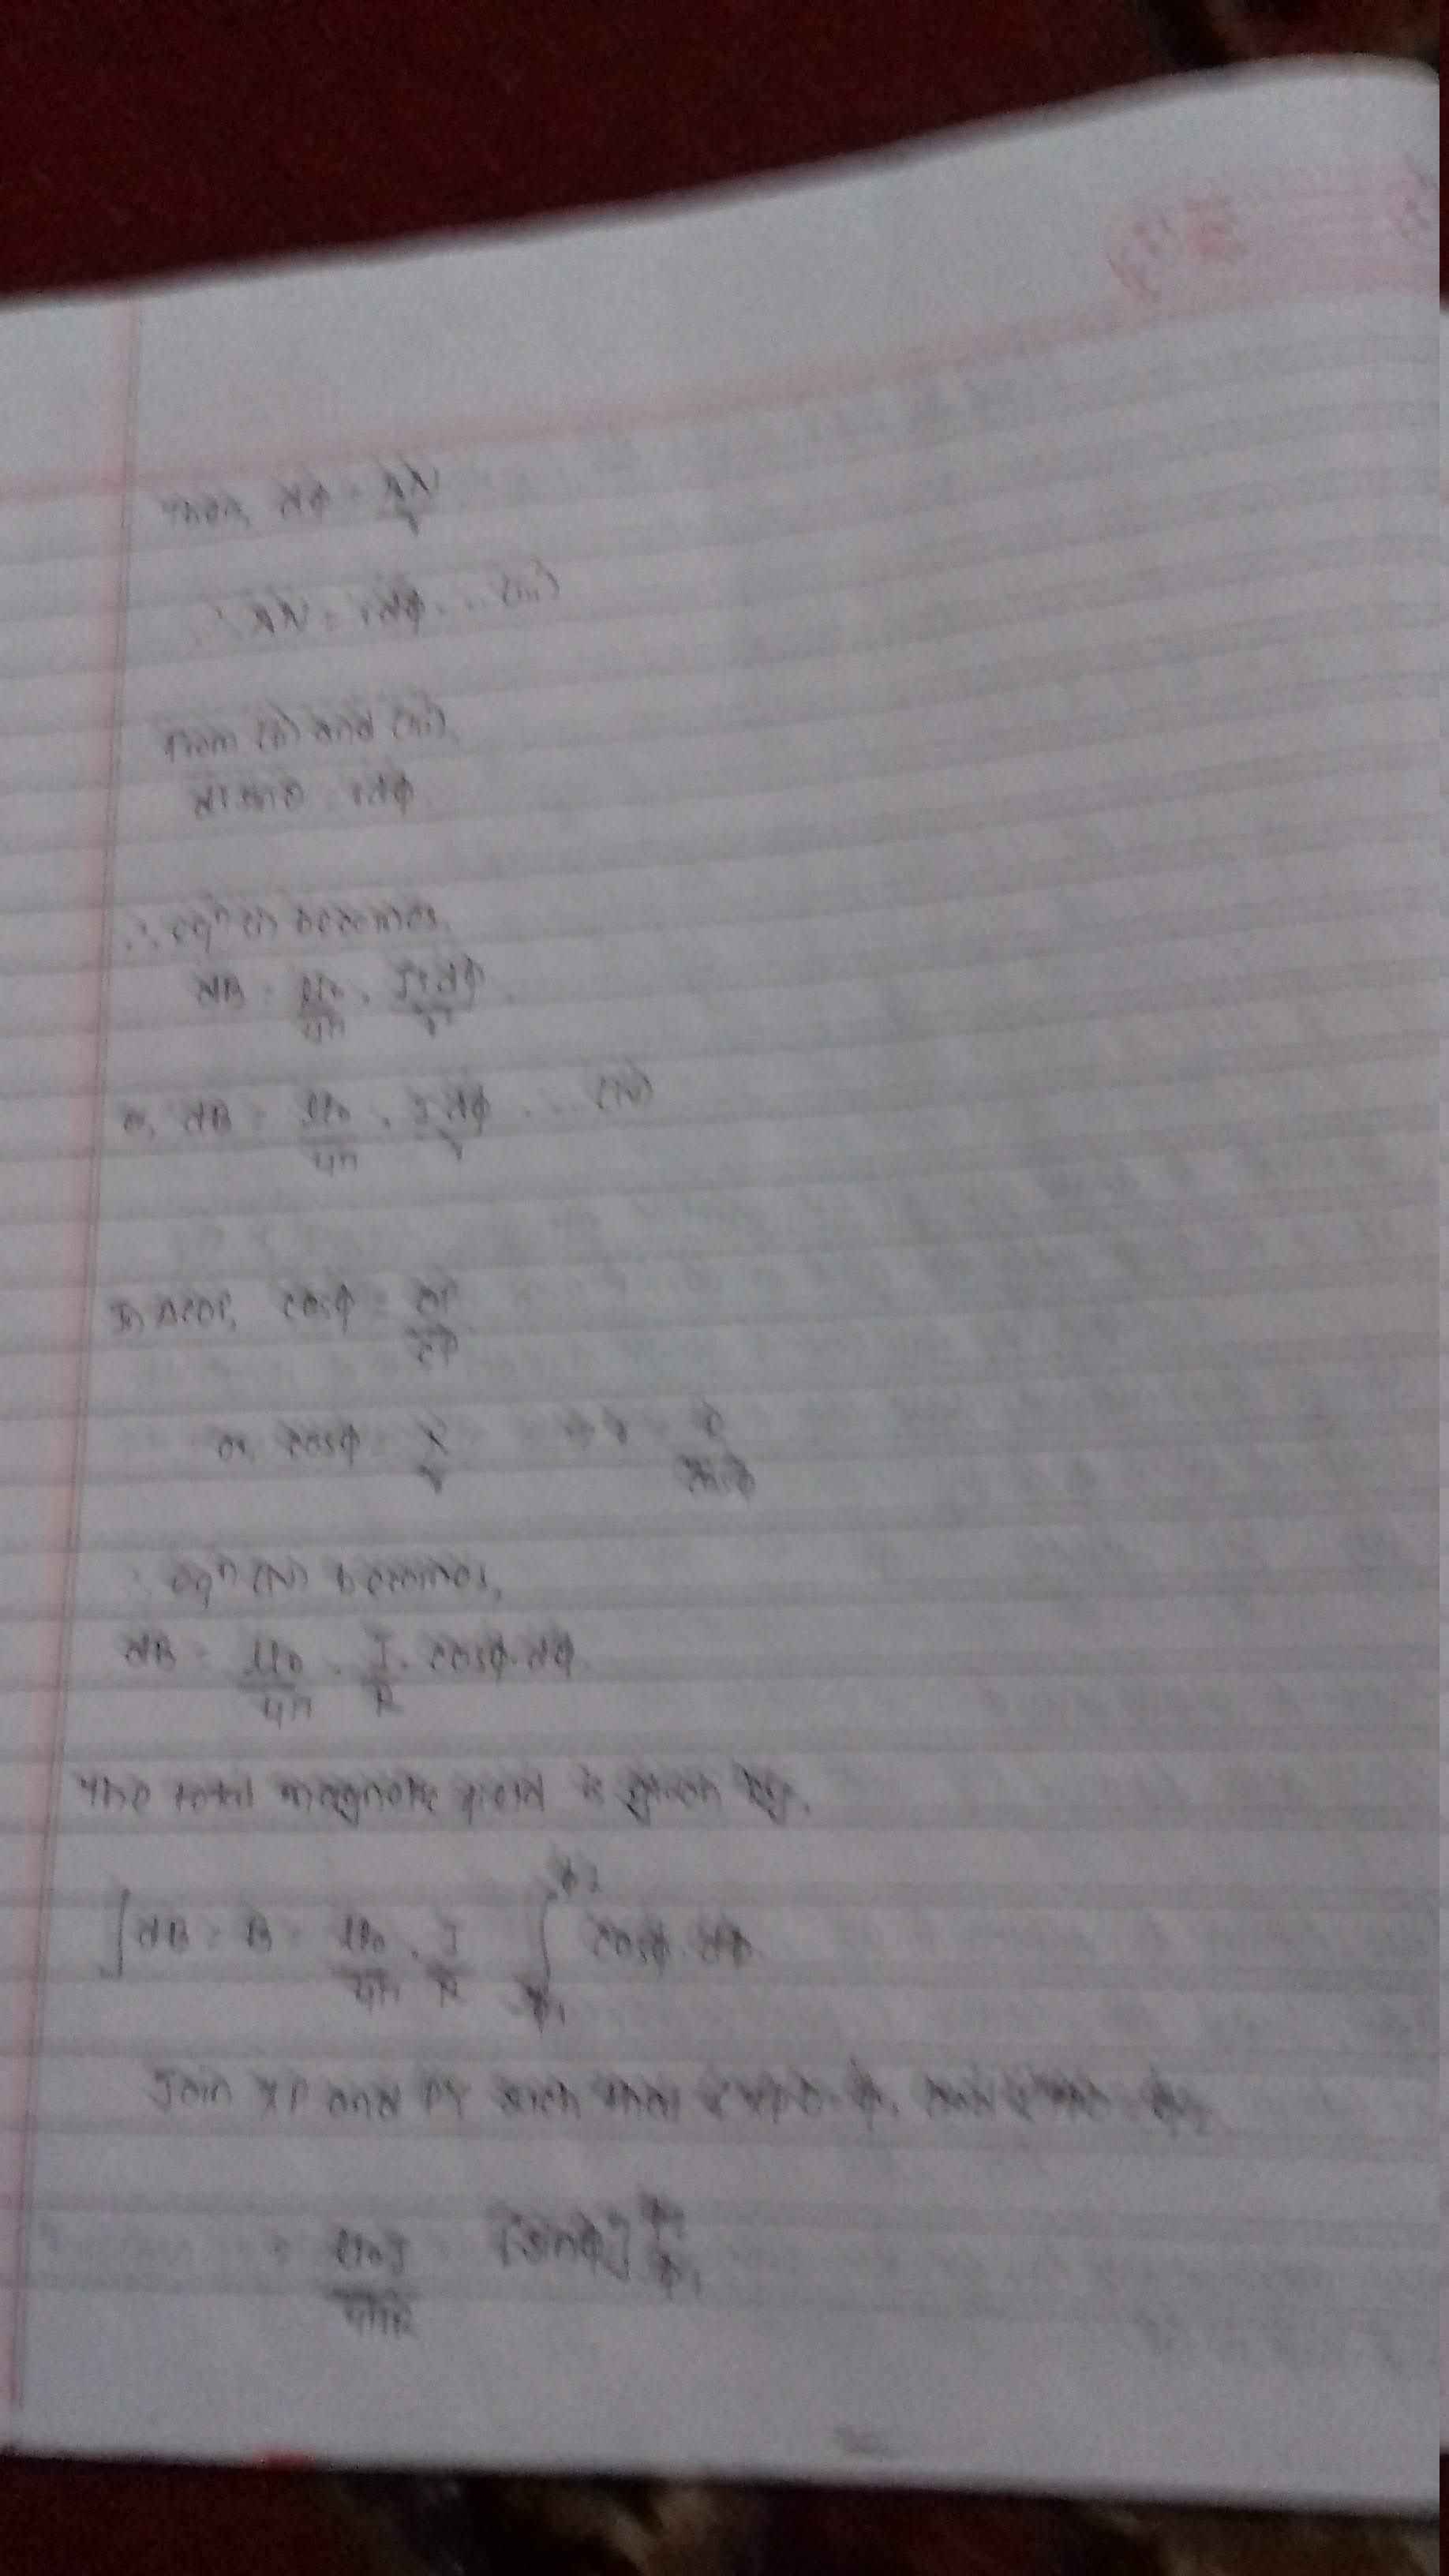 Then, dφ = AN/r
∴ AN = rdφ ... (iii)
From (ii) and (iii),
dl sinθ = rdφ
∴ eqn (i) becomes,
dB = μ0/4π . Irdφ/r²
or, dB = μ0/4π . Idφ/r ... (iv)
In ΔCOP, cosφ = OP/CP
or, cosφ = R/r ⇒ r = R/cosφ
∴ eqn (iv) becomes,
dB = μ0/4π . I/R . cosφ.dφ
The total magnetic field is given by,
∫dB = B = μ0/4π . I/R ∫ φ2 φ1 cosφ.dφ
Join XP and PY such that φ1 and φ2
= μ0I/4πR [sinφ] φ2 φ1